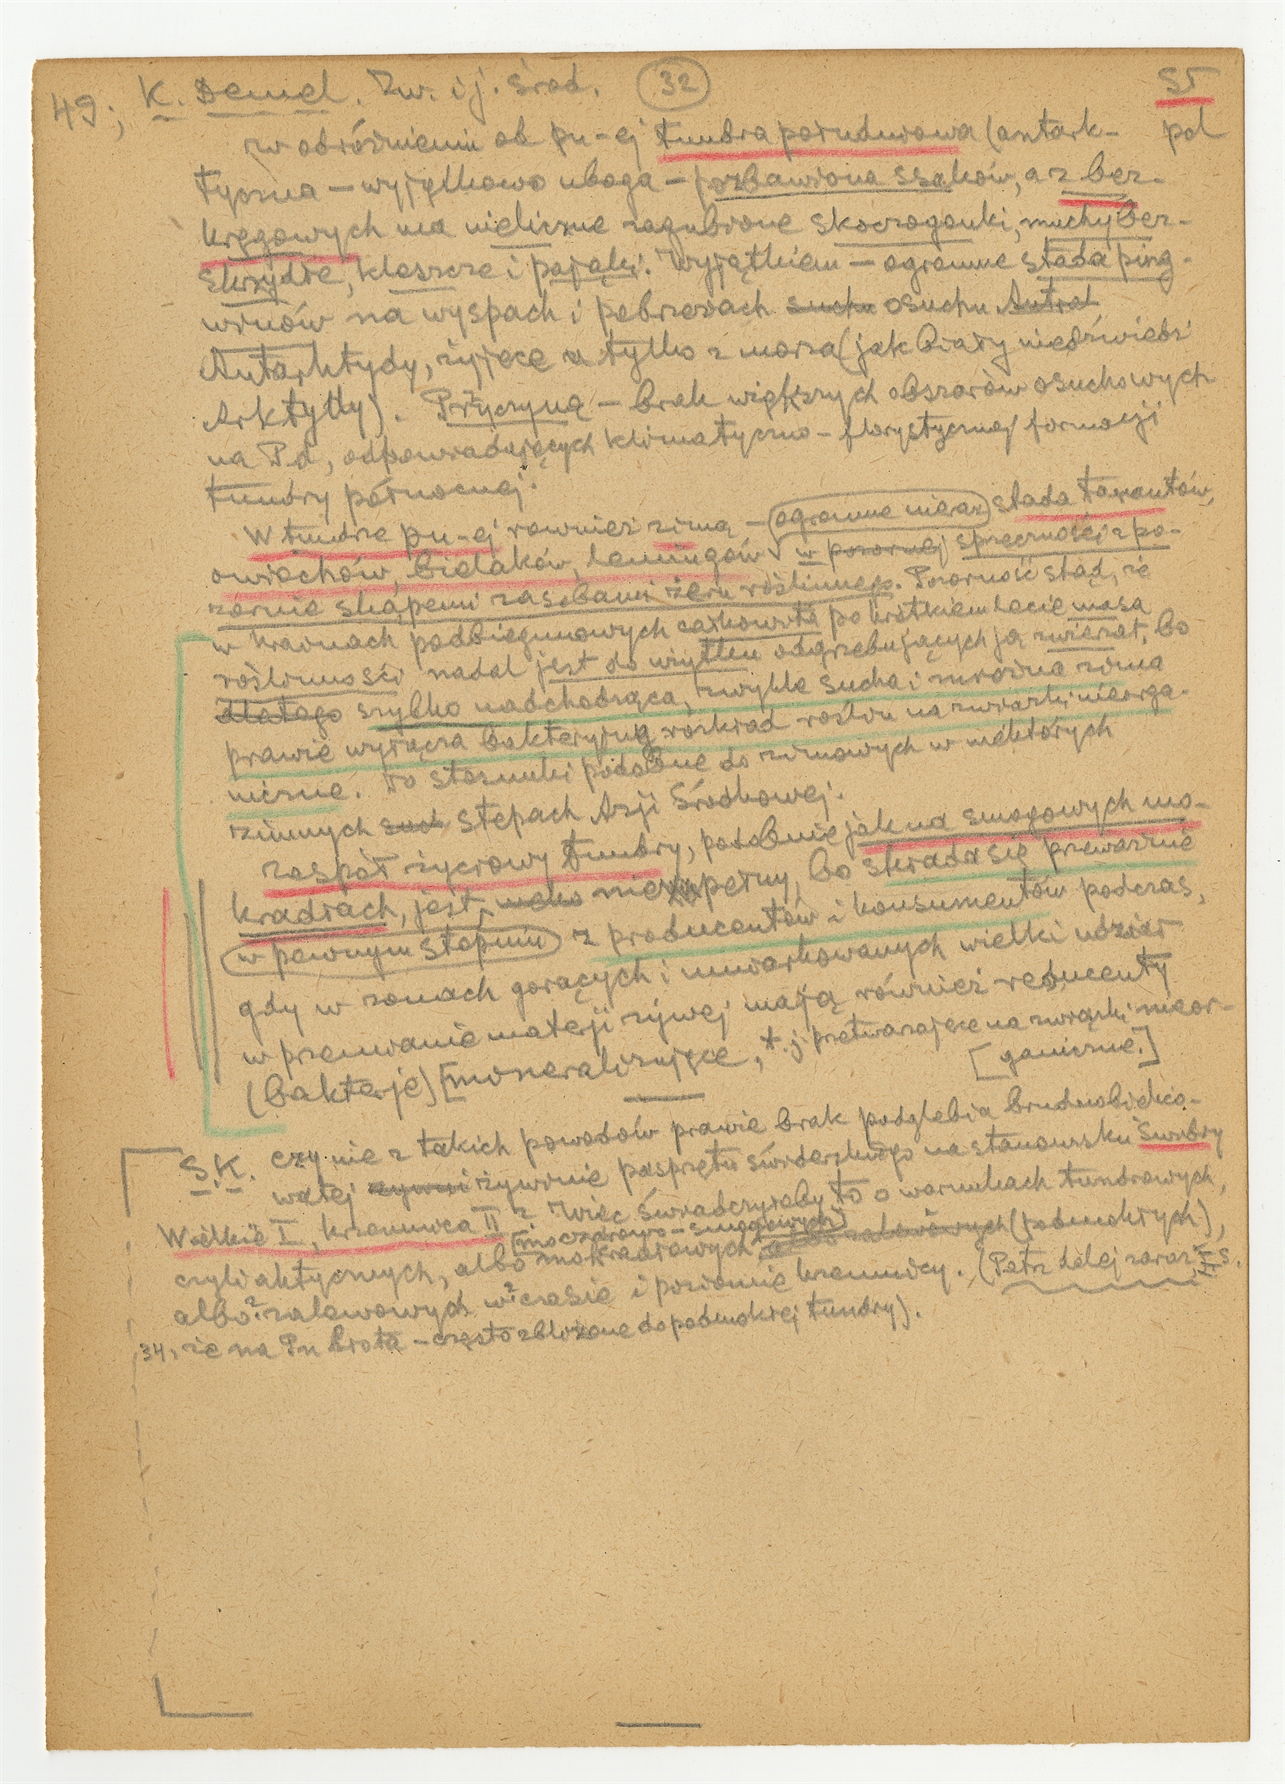 49; K. Demel. Zw. i j. środ. 32 ST
w odróżnieniu od pn-ej tundra południowa (antark- pol
tyczna – wyjątkowo uboga – pozbawiona ssaków, a z bez-
kręgowych ma nieliczne zagubione skoczogonki, muchy bez-
skrzydłe, kleszcze i pająki. Wyjątkiem – ogromne stada ping-
winów na wyspach i pobrzeżach suchu osuchu Autral
Antarktydy, żyjące z tylko z morza (jak biały niedźwiedź
Arktyki). Przyczyną – brak większych obszarów osuchowych
na Pd, odpowiadających klimatyczno – florystycznej formacji
tundry północnej.
W tundrze pn-ej również zimą – ogromne nieraz stada tarantów,
owiechów, bielaków, lemingów w pozornej sprzeczności z po-
zornie skąpemi zasobami żeru roślinnego. Pozorność stąd, że
w krainach podbiegunowych całkowita po krótkiem lecie masa
roślinności nadal jest do użytku odgrzebujących ją zwierząt, bo
dlatego szybko nadchodząca, zwykle sucha i mroźna zima
prawie wyłącza bakteryjny rozkład roślin na związki nieorga-
niczne. To stosunki podobne do zimowych w niektórych
zimnych such stepach Azji Środkowej.
Zespół życiowy tundry, podobnie jak na smogowych mo-
kradłach, jest niezupełny, bo składa się przeważnie
w pewnym stopniu z producentów i konsumentów podczas,
gdy w zonach gorących i umiarkowanych wielki udział
w przemianie materji żywej mają również reducenty
(bakterje) [mineralizujące, t. j. przetwarzające na związki nieor-
[ganiczne.]
S.K. czy nie z takich powodów prawie brak podglebia brudnobielico-
watej żywi żywinie pasprzętu świderskiego na stanowisku Świdry
Wielkie I, krzemica II ? Więc świadczyłaby to o warunkach tundrowych,
[moczarowo – smogowych]
czyli aktycznych, albo mokradłowych, zalewowych (podmokłych),
albo? zalewowych w? czasie i poziomie krzemicy. (Patrz dalej zaraz
34, że na Pn błota – często zbliżone do podmokłej tundry).